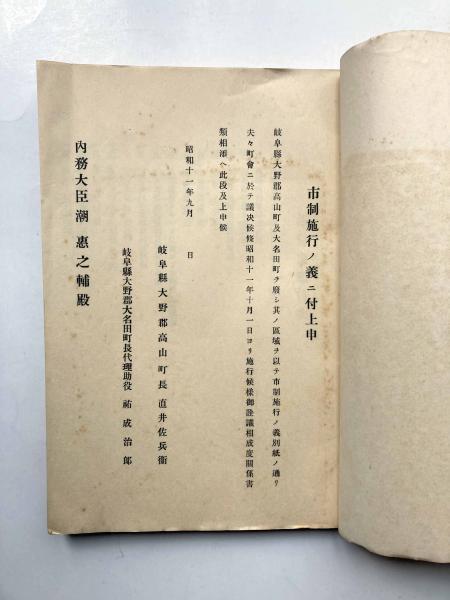 市制施行ノ義ニ付上申
岐阜縣大野郡高山町及大名田町ヲ廢シ其ノ區域ヲ以テ市制施行ノ義別紙ノ通リ
夫々町會ニ於テ議决候條昭和十一年十月一日ヨリ施行候樣御詮議相成度關係書
類相添ヘ此段及上申候
昭和十一年九月 日
岐阜縣大野郡高山町長 直井佐兵衞
岐阜縣大野郡大名田町長代理助役 祐成治郎
內務大臣潮惠之輔殿